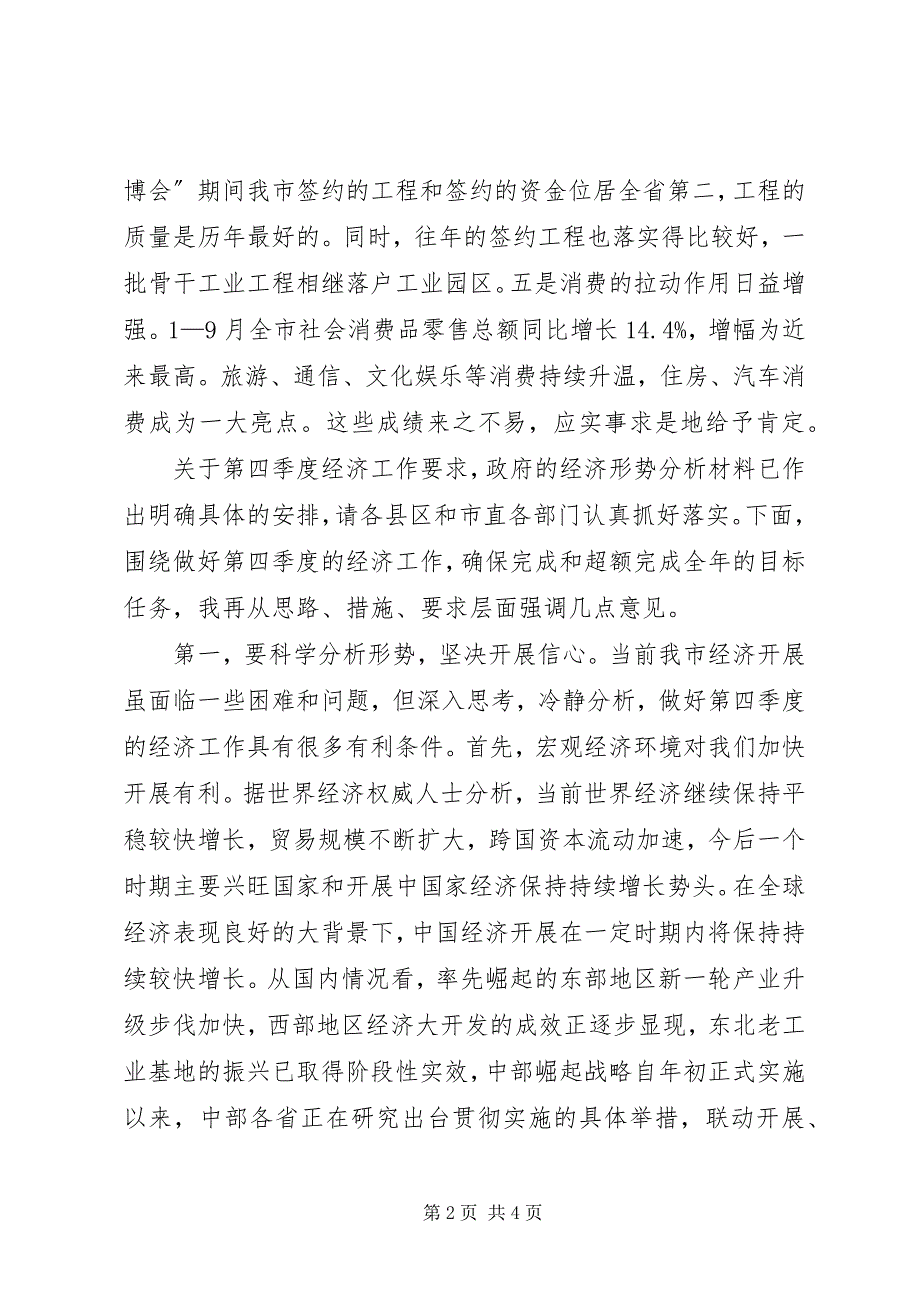 博会〞期间我市签约的工程和签约的资金位居全省第二，工程的
质量是历年最好的。同时，往年的签约工程也落实得比较好，一
批骨干工业工程相继落户工业园区。五是消费的拉动作用日益增
强。1—9 月全市社会消费品零售总额同比增长 14.4%，增幅为近
来最高。旅游、通信、文化娱乐等消费持续升温，住房、汽车消
费成为一大亮点。这些成绩来之不易，应实事求是地给予肯定。
关于第四季度经济工作要求，政府的经济形势分析材料已作
出明确具体的安排，请各县区和市直各部门认真抓好落实。下面，
围绕做好第四季度的经济工作，确保完成和超额完成全年的目标
任务，我再从思路、措施、要求层面强调几点意见。
第一，要科学分析形势，坚决开展信心。当前我市经济开展
虽面临一些困难和问题，但深入思考，冷静分析，做好第四季度
的经济工作具有很多有利条件。首先，宏观经济环境对我们加快
开展有利。据世界经济权威人士分析，当前世界经济继续保持平
稳较快增长，贸易规模不断扩大，跨国资本流动加速，今后一个
时期主要兴旺国家和开展中国家经济保持持续增长势头。在全球
经济表现良好的大背景下，中国经济开展在一定时期内将保持持
续较快增长。从国内情况看，率先崛起的东部地区新一轮产业升
级步伐加快，西部地区经济大开发的成效正逐步显现，东北老工
业基地的振兴已取得阶段性实效，中部崛起战略自年初正式实施
以来，中部各省正在研究出台贯彻实施的具体举措，联动开展、
第 2 页 共 4 页